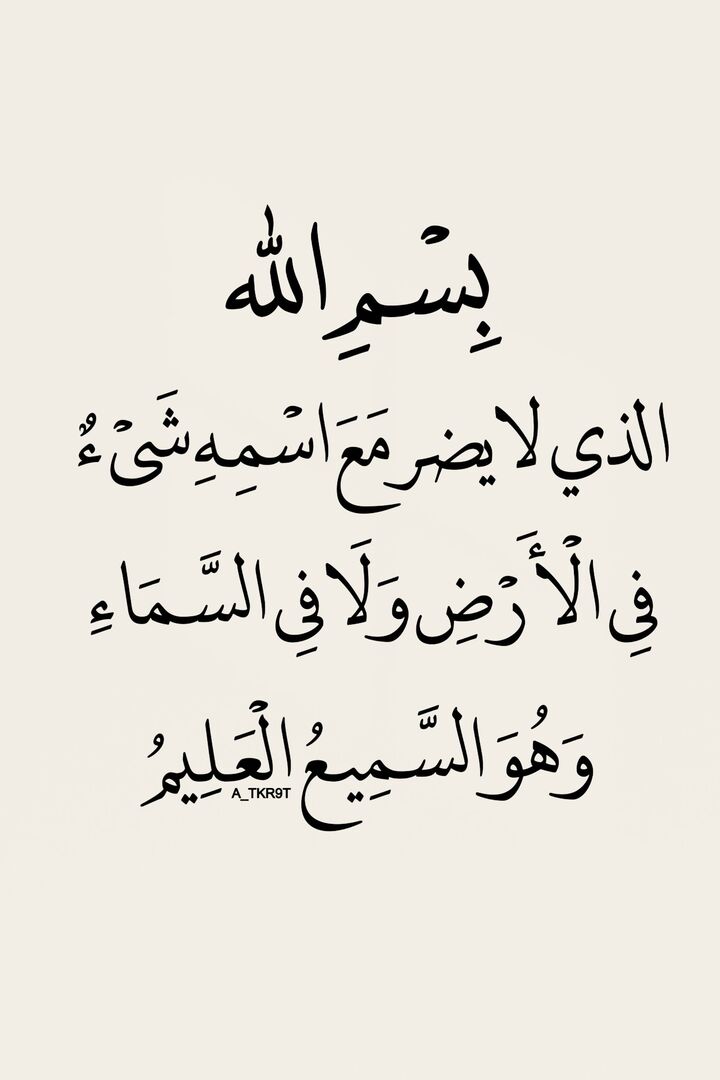 بِسْمِ الله
الذي لا يضر مَعَ اسْمِهِ شَىْءٌ
فِي الْأَرْضِ وَلَا فِي السَّمَاءِ
وَهُوَ السَّمِيعُ الْعَلِيمُ
A_TKR9T